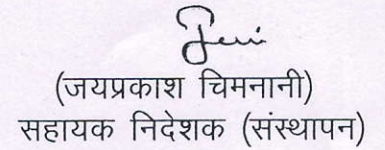 (जयप्रकाश चिमनानी)
सहायक निदेशक (संस्थापन)